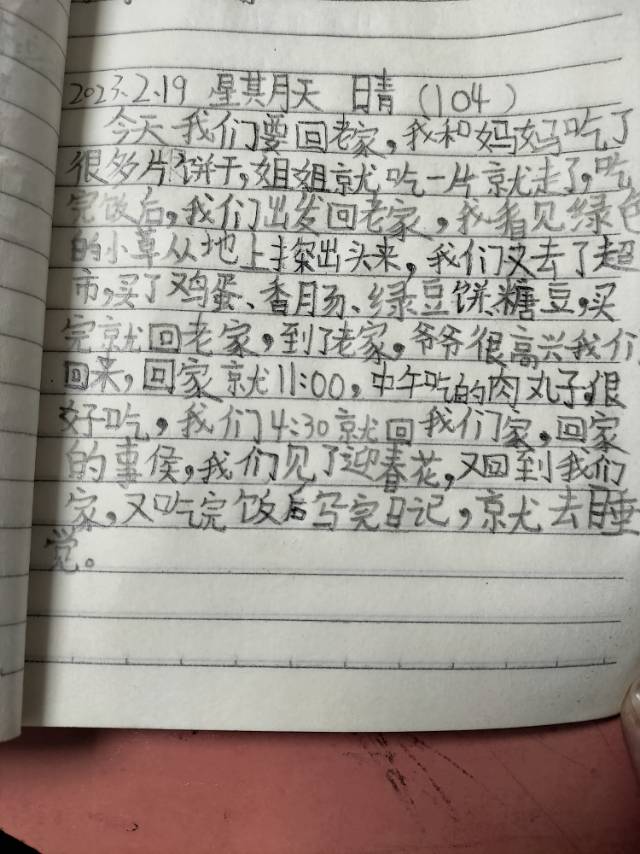 2023.2.19 星其月天 日晴（104）
今天我们要回老家，我和妈妈吃了
很多片饼干，姐姐就吃一片就走了，吃
完饭后，我们出发回老家，我看见绿色
的小草从地上探出头来，我们又去了超
市，买了鸡蛋、香肠、绿豆饼、糖豆，买
完就回老家，到了老家，爷爷很高兴我们
回来，回家就11:00，中午吃的肉丸子，很
好吃，我们4:30就回我们家，回家
的事侯，我们见了迎春花，又回到我们
家，又吃完饭后写完日记，就去睡
觉。